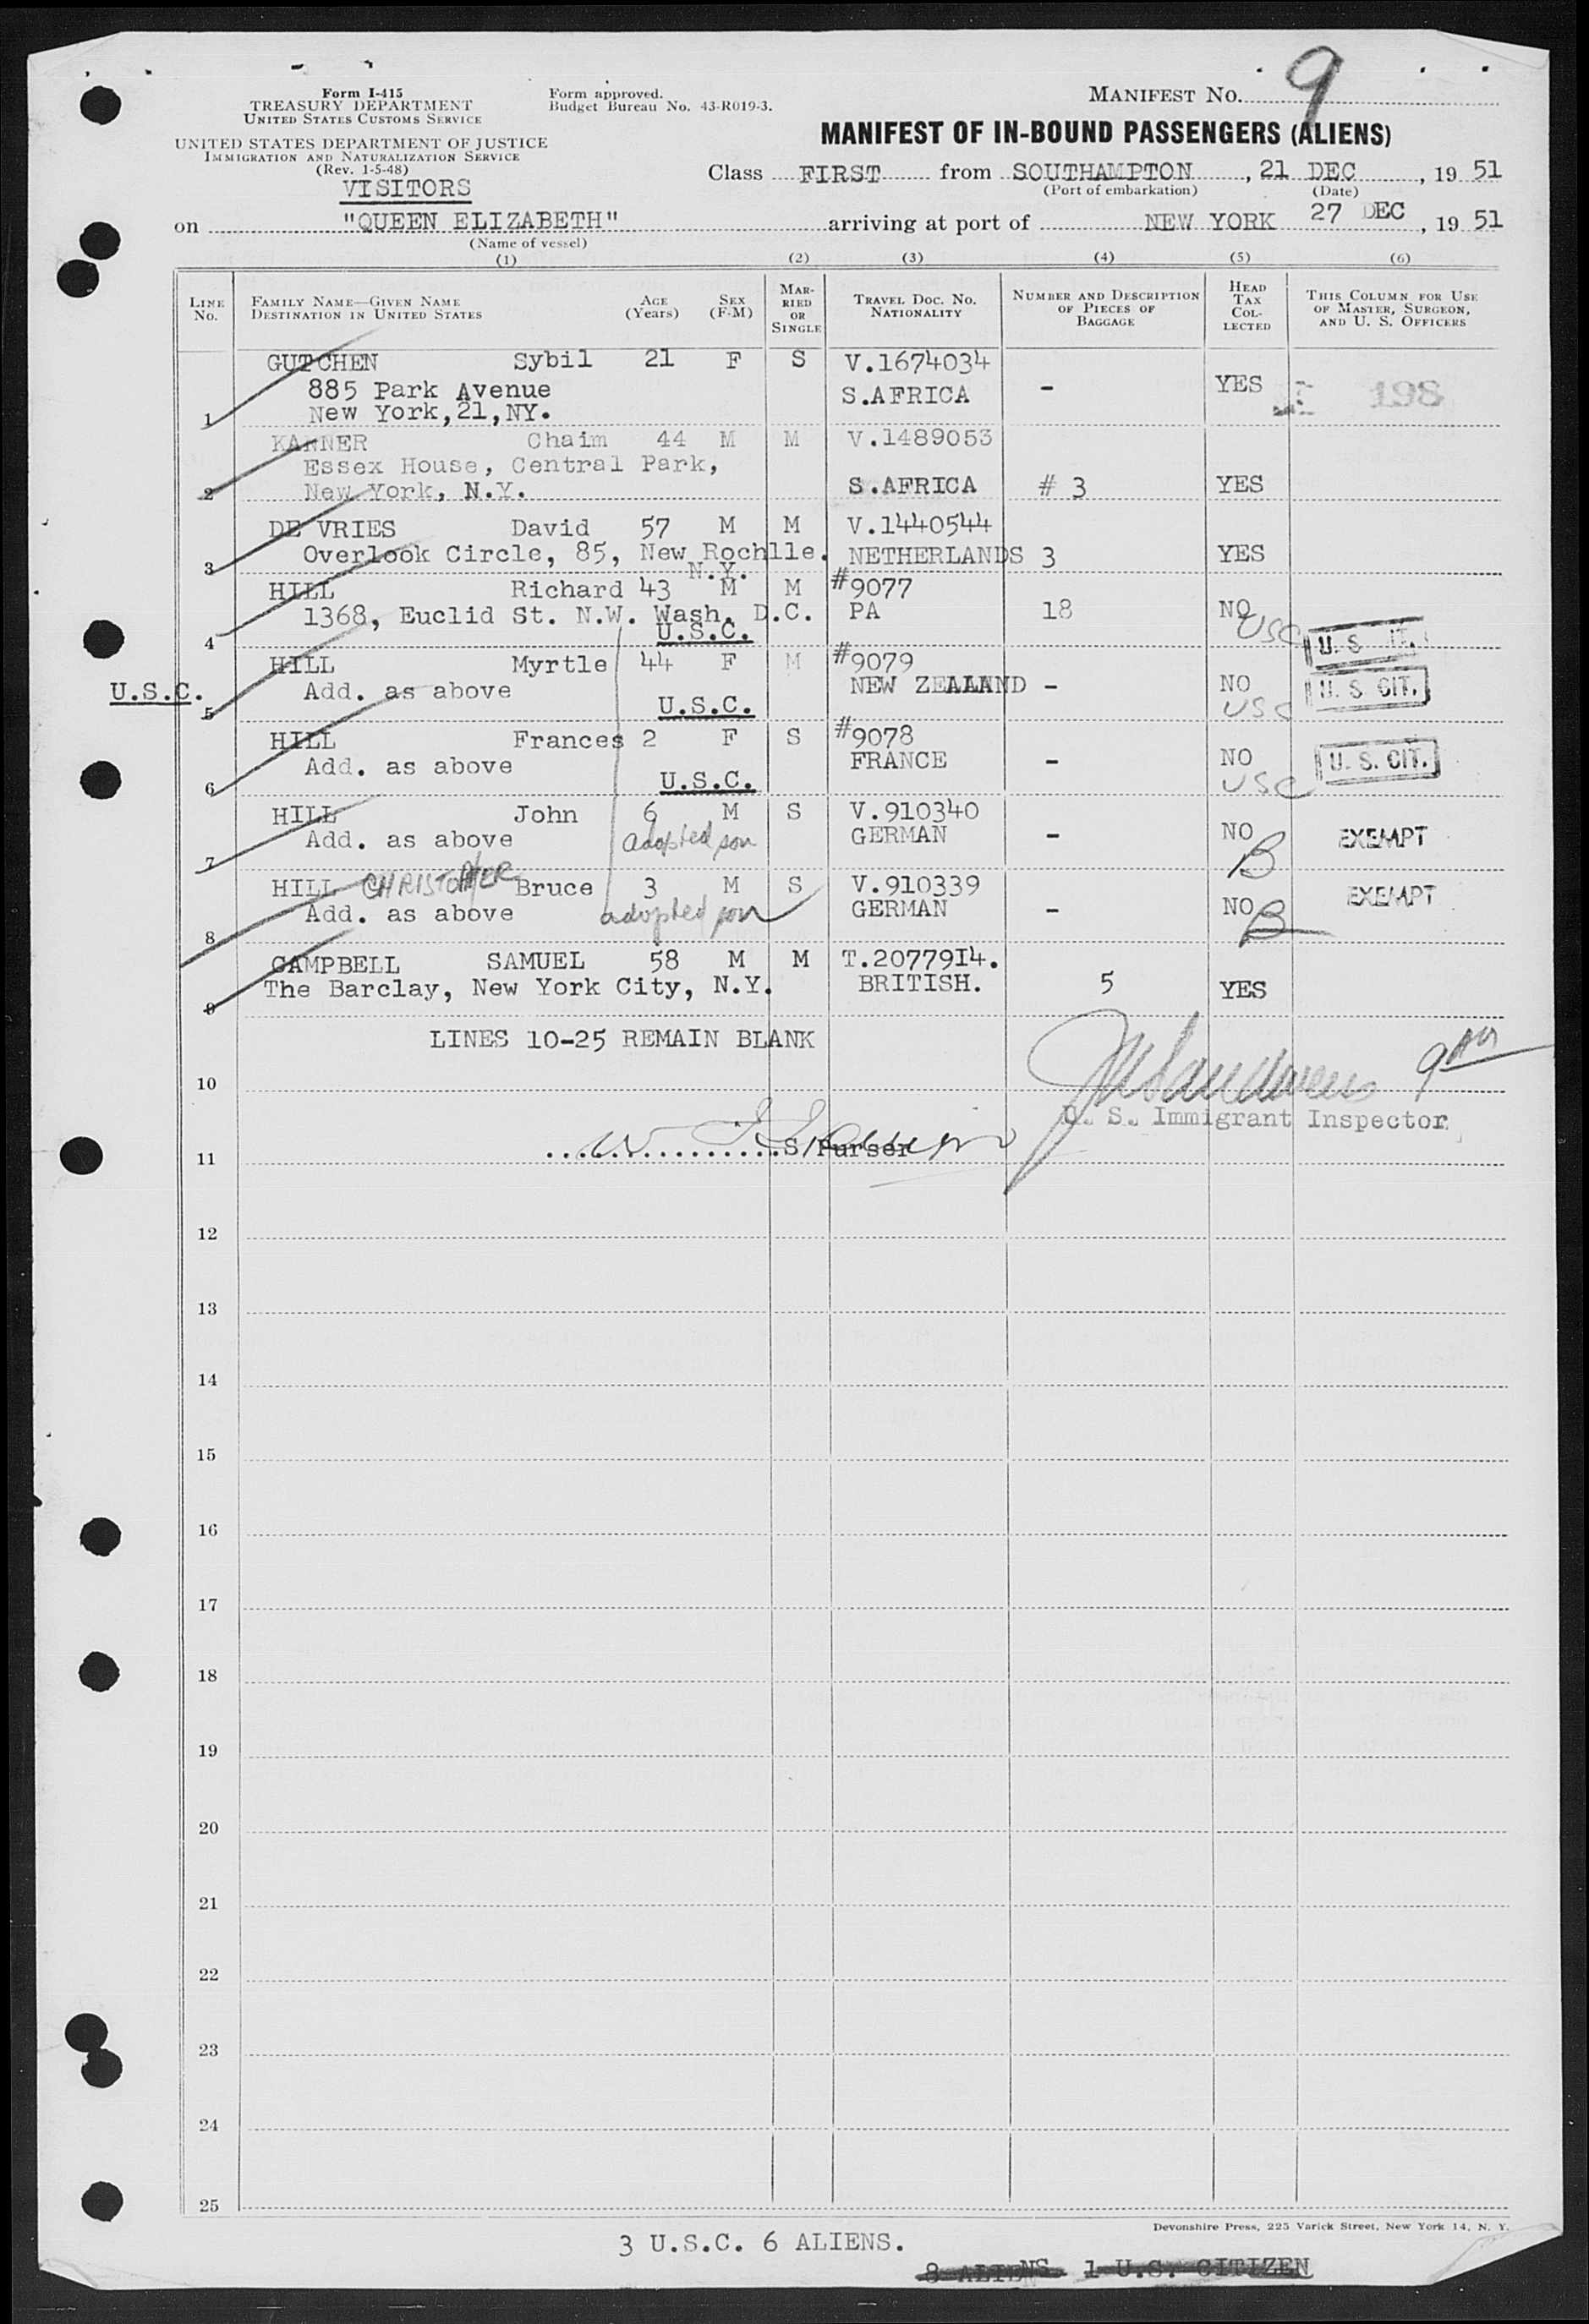 Form I-415
TREASURY DEPARTMENT
UNITED STATES CUSTOMS SERVICE
UNITED STATES DEPARTMENT OF JUSTICE
IMMIGRATION AND NATURALIZATION SERVICE
(Rev. 1-5-48)
VISITORS
Form approved.
Budget Bureau No. 43-R019-3.
MANIFEST NO. 9
MANIFEST OF IN-BOUND PASSENGERS (ALIENS)
Class FIRST from SOUTHAMPTON, 21 DEC, 19 51
(Port of embarkation) (Date)
on "QUEEN ELIZABETH" arriving at port of NEW YORK 27 DEC, 19 51
(Name of vessel)
(1) (2) (3) (4) (5) (6)
LINE NO. FAMILY NAME—GIVEN NAME DESTINATION IN UNITED STATES AGE (Years) SEX (F-M) MARRIED OR SINGLE TRAVEL DOC. NO. NATIONALITY NUMBER AND DESCRIPTION OF PIECES OF BAGGAGE HEAD TAX COLLECTED THIS COLUMN FOR USE OF MASTER, SURGEON, AND U. S. OFFICERS
GUTCHEN Sybil 21 F S V.1674034
885 Park Avenue S.AFRICA - YES 198
1 New York,21,NY.
KARNER Chaim 44 M M V.1489053
Essex House, Central Park,
2 New York, N.Y. S.AFRICA # 3 YES
DE VRIES David 57 M M V.1440544
3 Overlook Circle, 85, New Rochlle. NETHERLANDS 3 YES
N.Y.
HILL Richard 43 M M #9077
1368, Euclid St. N.W. Wash. D.C. PA 18 NO
4 U.S.C. USC U. S. CIT.
HILL Myrtle 44 F M #9079
U.S.C. 5 Add. as above NEW ZEALAND - NO U. S. CIT.
U.S.C. USC
HILL Frances 2 F S #9078
6 Add. as above FRANCE - NO U. S. CIT.
U.S.C. USC
HILL John 6 M S V.910340
7 Add. as above adopted son GERMAN - NO B EXEMPT
HILL CHRISTOPHER Bruce 3 M S V.910339
8 Add. as above adopted son GERMAN - NO B EXEMPT
CAMPBELL SAMUEL 58 M M T.2077914.
9 The Barclay, New York City, N.Y. BRITISH. 5 YES
LINES 10-25 REMAIN BLANK
10
U. S. Immigrant Inspector
11 S/Purser
12
13
14
15
16
17
18
19
20
21
22
23
24
25
Devonshire Press, 225 Varick Street, New York 14, N. Y.
3 U.S.C. 6 ALIENS.
8 ALIENS. 1 U.S. CITIZEN